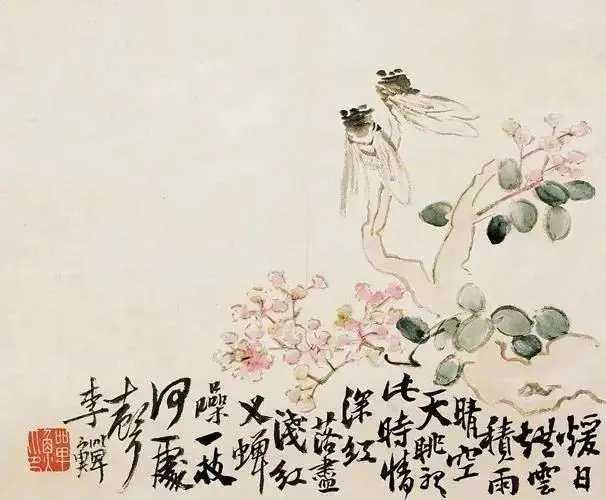 煖日
烘雲
積雨
晴空
天眺
此時情
深紅
落盡
淺紅
又蟬
噪一枝
何處
聲
李鱓